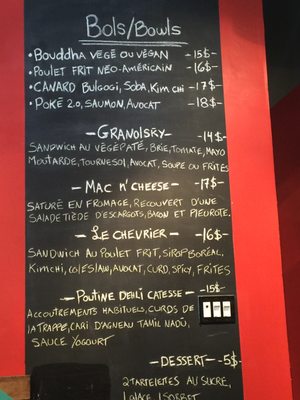 Bols/Bowls
• Bouddha végé ou végan - 15$ -
• Poulet frit néo-américain - 16$ -
• CANARD Bulgogi, Soba, Kimchi - 17$ -
• Poké 2.0, Saumon, Avocat - 18$ -
- GRANOlSKy - 14$ -
SANdwich AU végépaté, Brie, Tomate, MAyo
Moutarde, Tournesol, Avocat, Soupe ou frites
- MAC n' CHEESE - 17$ -
SAturé en fromage, recouvert d'une
SALADE Tiède d'escargots, BAcon et pleurote.
- Le Chevrier - 16$ -
SANdwich Au Poulet frit, Sirop Boréal,
Kimchi, coleslaw, Avocat, CURD, Spicy, frites
- Poutine Dehli CATESSE - 15$ -
Accoutrements habituels, CURDS de
la TRAppe, CARi d'Agneau Tamil NADU,
SAUCE yogourt
- Dessert - 5$ -
2 TARTELETTES AU SUCRE,
1 glace 1 sorbet